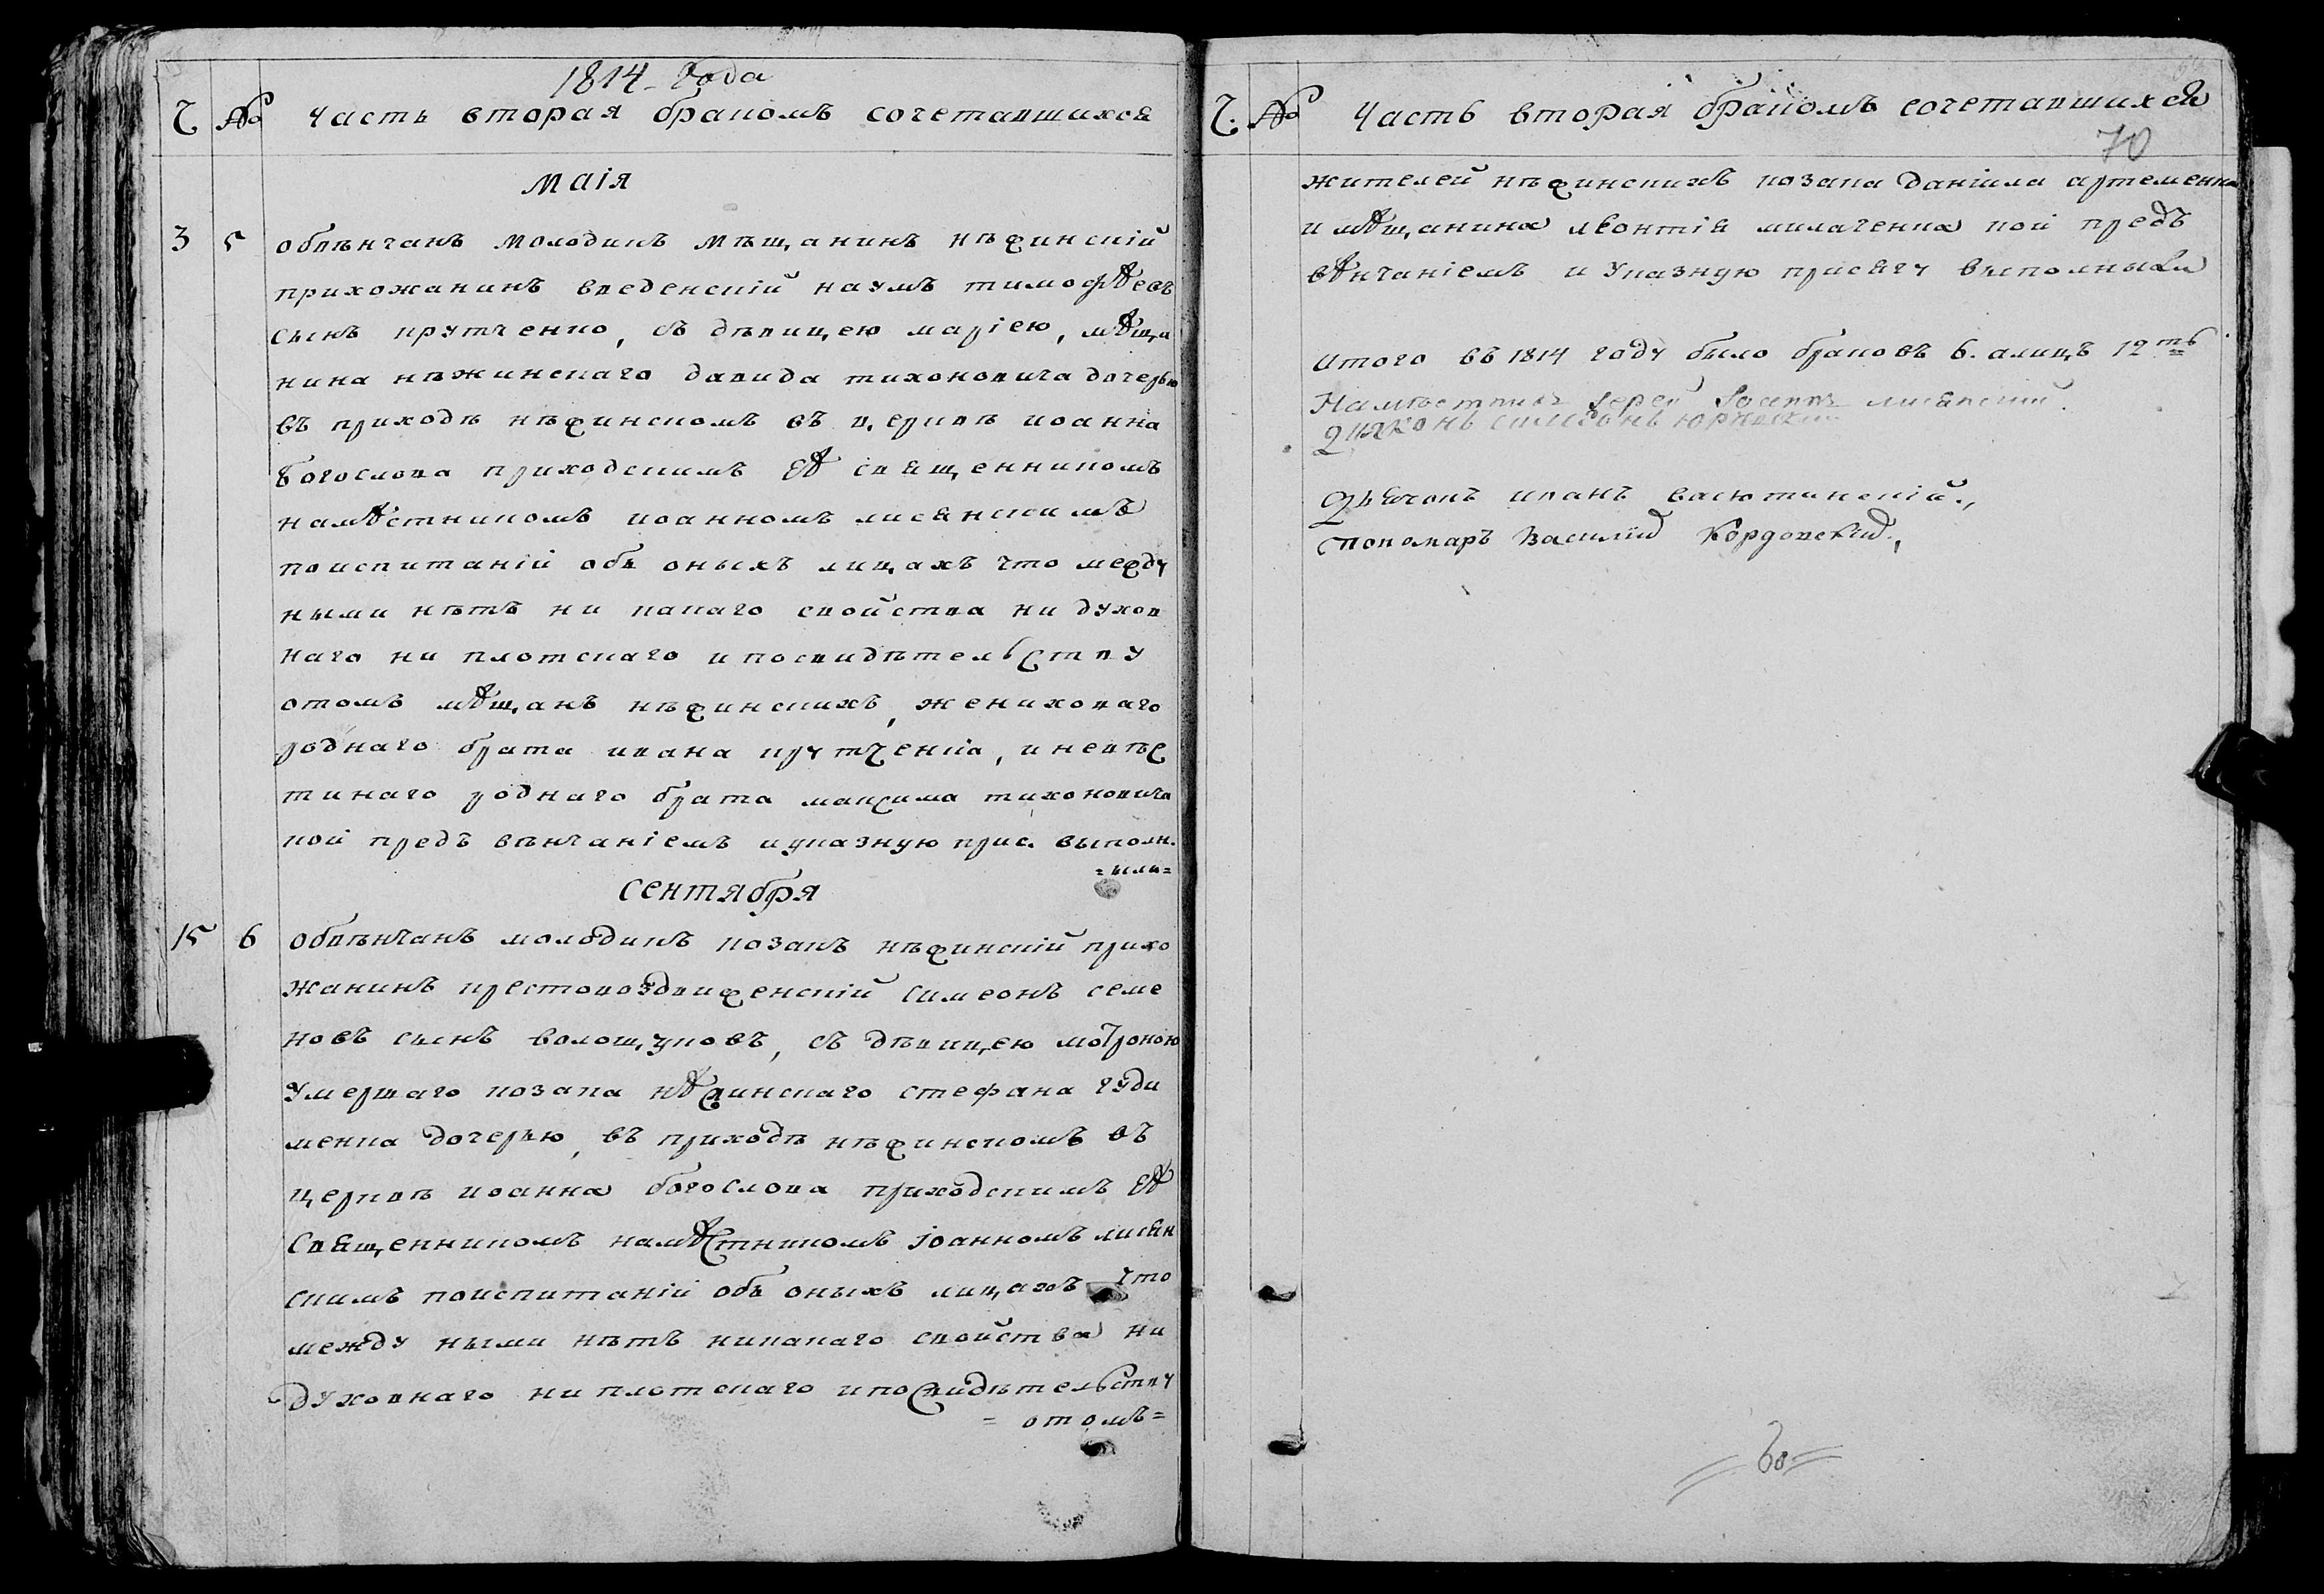 1814 Года
Ч № Часть вторая бракомъ сочетавшихся
Маія
3 5 обвѣнчанъ молодикъ мѣщанинъ нѣжинскій
прихожанинъ введенскій наумъ тимофѣевъ
сынъ крутченко, съ дѣвицею маріею, мѣща
нина нѣжинскаго давида тихоновича дочерью
въ приходѣ нѣжинскомъ въ церквѣ иоанна
Богослова приходскимъ ея священникомъ
намѣстникомъ иоанномъ лисянскимъ
поиспитаніи объ оныхъ лицахъ что между
ными нѣтъ ни какаго свойства ни духов
наго ни плотскаго ипосвидѣтельству
отомъ мѣщанъ нѣжинскихъ, жениховаго
роднаго брата ивана крутченка, иневѣс
тинаго роднаго брата максима тихоновича
кои предъ вѣнчаніемъ иуказную прис. выполн.
=ыли=
сентября
15 6 обвѣнчанъ молодикъ козакъ нѣжинскій прихо
жанинъ крестовоздвиженскій симеонъ семе
новъ сынъ волощуковъ, съ дѣвицею мотроною
умершаго козака нѣжинскаго стефана гуди
менка дочерью, въ приходѣ нѣжинскомъ въ
церквѣ иоанна богослова приходскимъ ея
священникомъ намѣстникомъ іоанномъ лисян
скимъ поиспитаніи объ оныхъ лицахъ что
между ными нѣтъ никакаго свойства ни
духовнаго ни плотскаго ипосвидѣтельству
= отомъ=
Ч. № Часть вторая бракомъ сочетавшихся
70
жителей нѣжинскихъ козака даніила артеменка
и мѣщанина леонтія милаченка кои предъ
вѣнчаніемъ и указную присягу выполныли
Итого въ 1814 году было браковъ 6. алицъ 12ть
Намѣстникъ іерей Іоаннъ лисянский.
Диаконъ симеонъ
Дьячокъ иванъ васютинскій.,
пономаръ Василий Кордовский.,
=60=